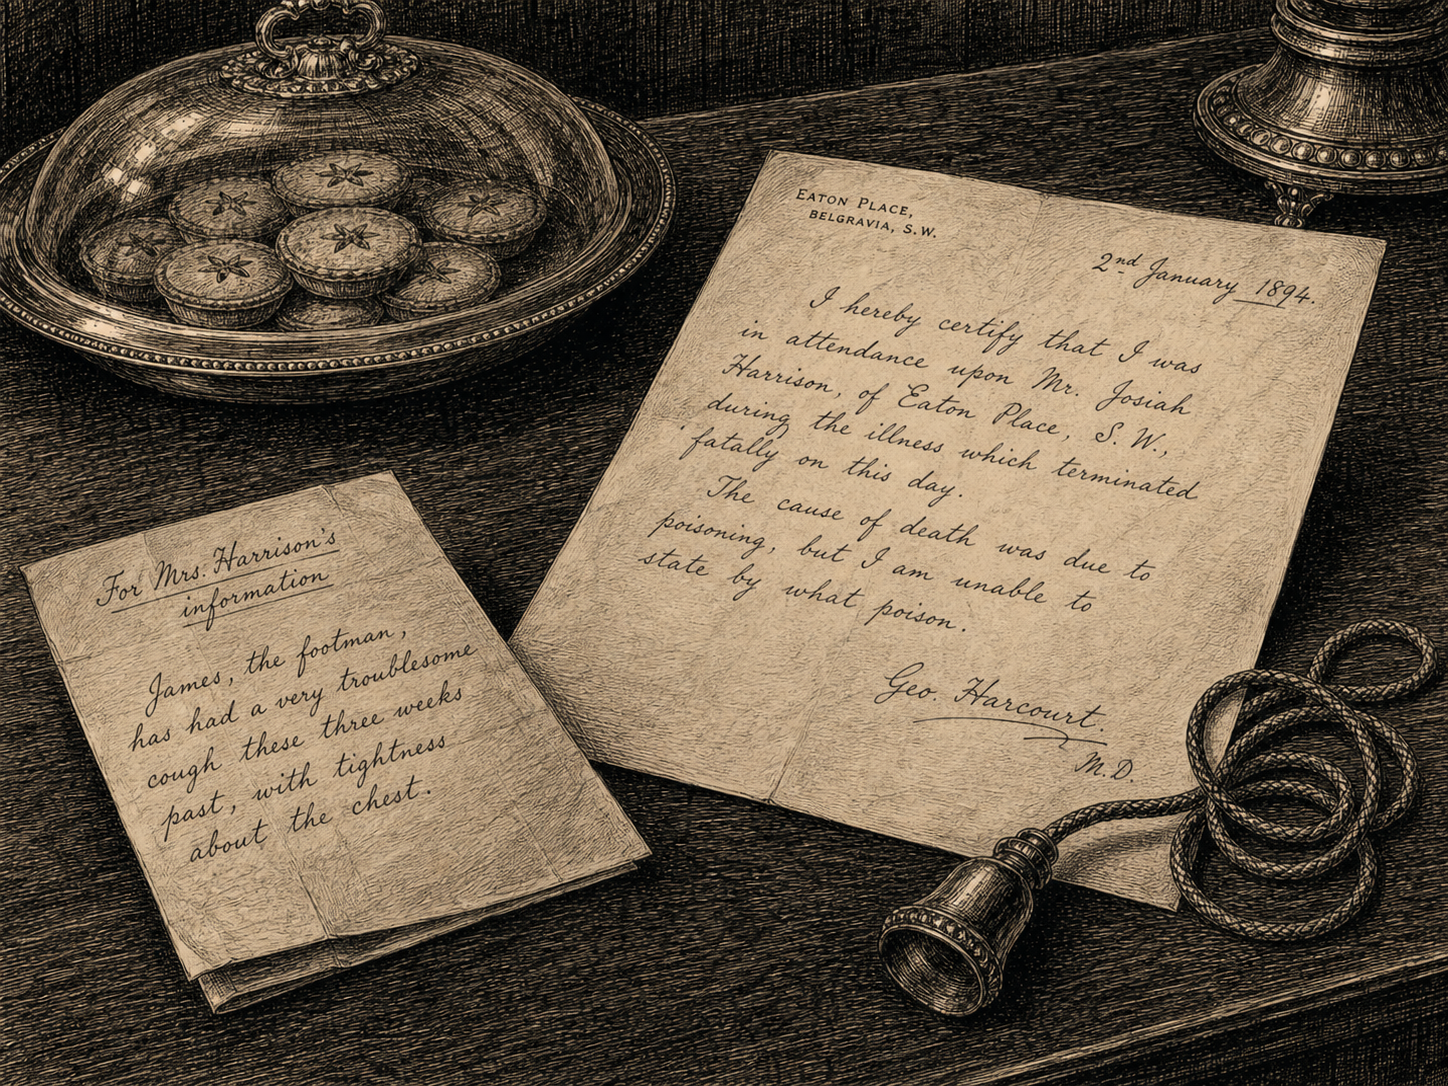 For Mrs. Harrison's
information
James, the footman,
has had a very troublesome
cough these three weeks
past, with tightness
about the chest.
EATON PLACE,
BELGRAVIA, S.W.
2nd January 1894.
I hereby certify that I was
in attendance upon Mr. Josiah
Harrison, of Eaton Place, S. W.,
during the illness which terminated
fatally on this day.
The cause of death was due to
poisoning, but I am unable to
state by what poison.
Geo. Harcourt.
M.D.